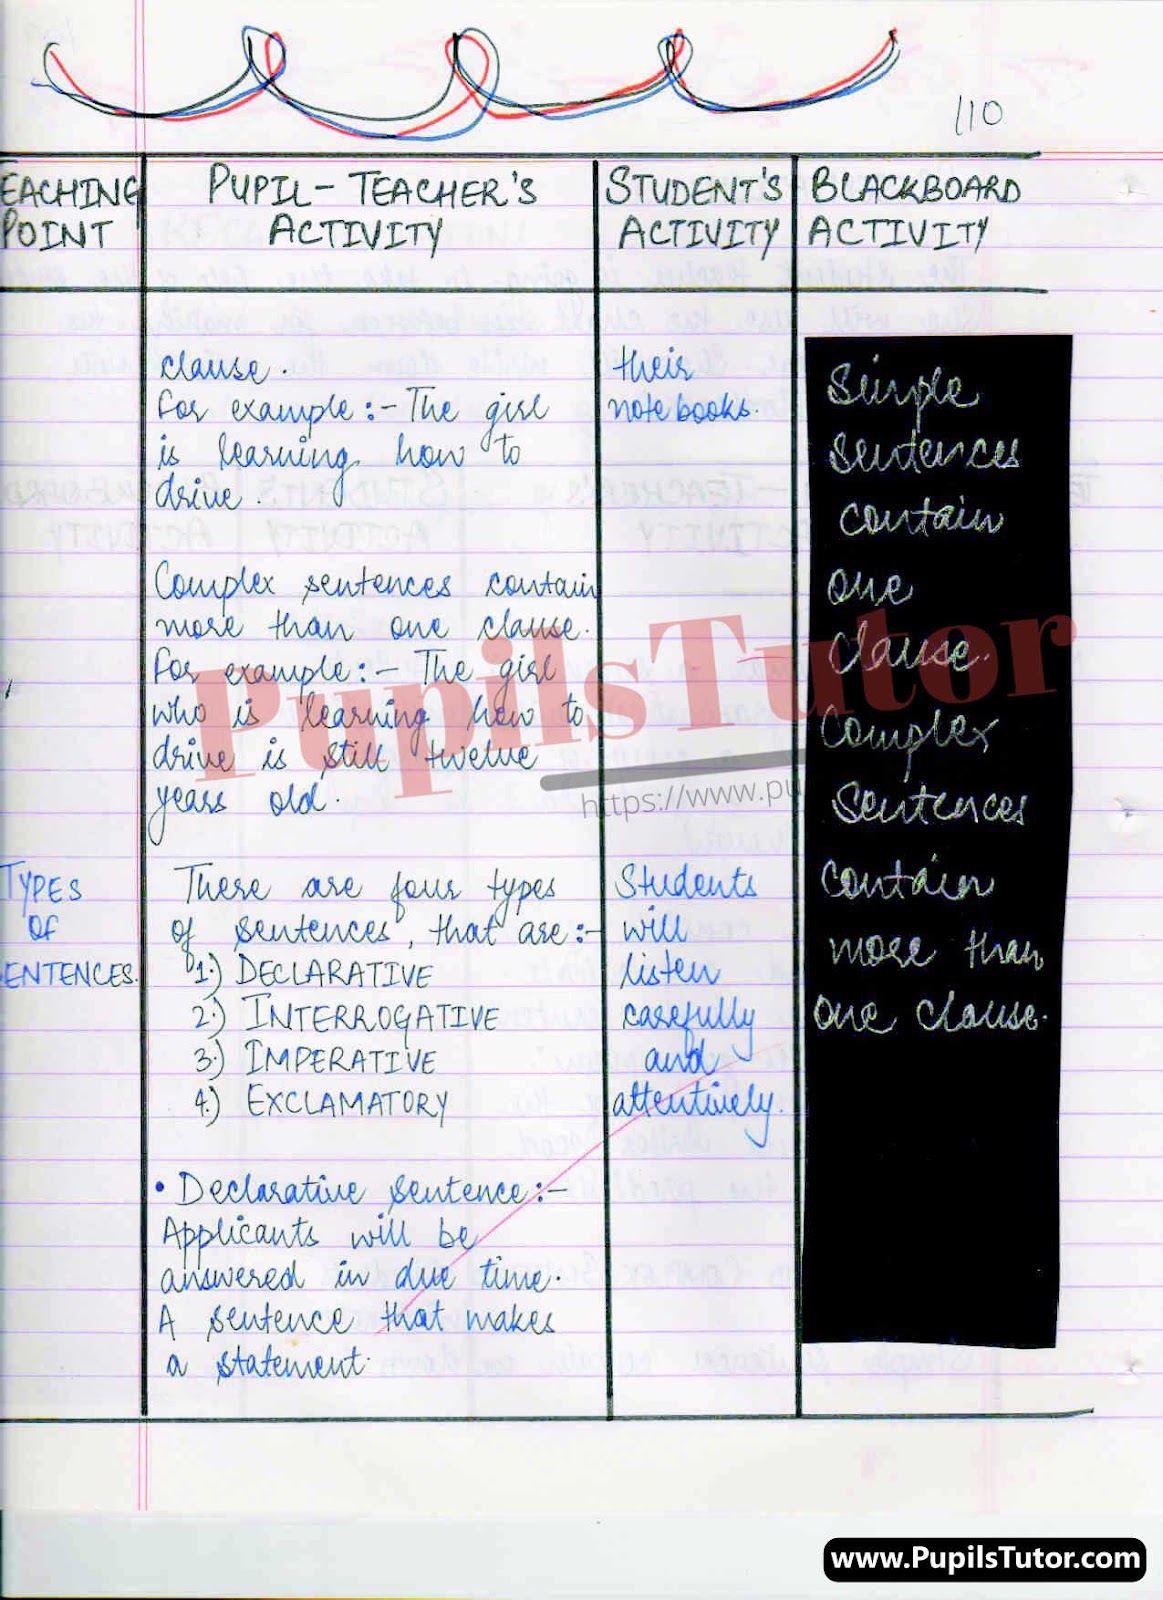 110
EACHING
POINT
PUPIL-TEACHER'S
ACTIVITY
STUDENT'S
ACTIVITY
BLACKBOARD
ACTIVITY
clause.
For example:- The girl
is learning how to
drive.
Complex sentences contain
more than one clause.
For example:- The girl
who is learning how to
drive is still twelve
years old.
their
notebooks.
Simple
sentences
contain
one
clause.
Complex
sentences
contain
more than
one clause.
PupilsTutor
https://www.pu
TYPES
OF
SENTENCES.
There are four types
of sentences, that are:-
1.) DECLARATIVE
2.) INTERROGATIVE
3.) IMPERATIVE
4.) EXCLAMATORY
Students
will
listen
carefully
and
attentively.
• Declarative sentence:-
Applicants will be
answered in due time.
A sentence that makes
a statement.
www.PupilsTutor.com